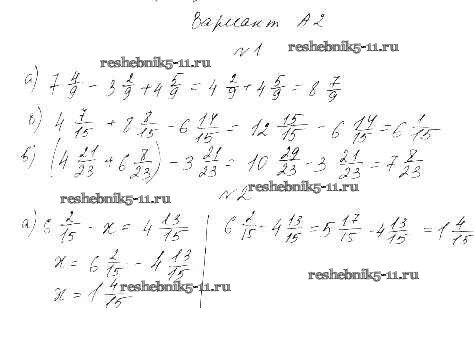 Вариант А2
№1
reshebnik5-11.ru
reshebnik5-11.ru
а) 7 4/9 - 3 2/9 + 4 5/9 = 4 2/9 + 4 5/9 = 8 7/9
б) 4 7/15 + 8 8/15 - 6 14/15 = 12 15/15 - 6 14/15 = 6 1/15
в) (4 21/23 + 6 8/23) - 3 21/23 = 10 29/23 - 3 21/23 = 7 8/23
reshebnik5-11.ru
№2
reshebnik5-11.ru
а) 6 2/15 - x = 4 13/15
x = 6 2/15 - 4 13/15
x = 1 4/15
reshebnik5-11.ru
6 2/15 - 4 13/15 = 5 17/15 - 4 13/15 = 1 4/15
reshebnik5-11.ru